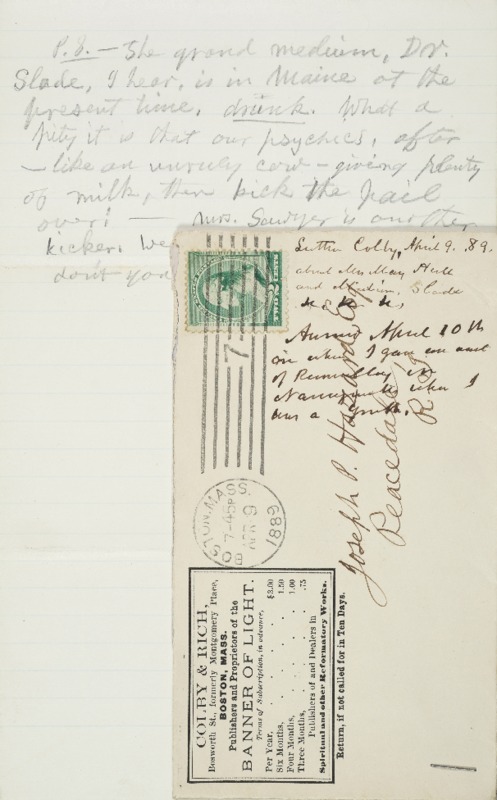 P.S. – The grand medium, Dr.
Slade, I hear, is in Maine at the
present time, drunk. What a
pity it is that our psychics, after
– like an unruly cow – giving plenty
of milk, then kick the pail
over! — Mrs. Sawyer is another
kicker. We
dont you
Luther Colby, April 9. 89.
about Mrs
and Medium, Slade
April 10th
in which I gave an
of
when I
was a
TWO 2 CENTS
7
BOSTON. MASS
7-45P
APR 9
1889
Joseph P. Hazard Esq
Peacedale
R. I.
COLBY & RICH,
Bosworth St., formerly Montgomery Place,
BOSTON, MASS.
Publishers and Proprietors of the
BANNER OF LIGHT.
Terms of Subscription, in advance,
Per Year, . . . . $3.00
Six Months, . . . . 1.50
Four Months, . . . . 1.00
Three Months, . . . . .75
Publishers of and Dealers in
Spiritual and other Reformatory Works.
Return, if not called for in Ten Days.